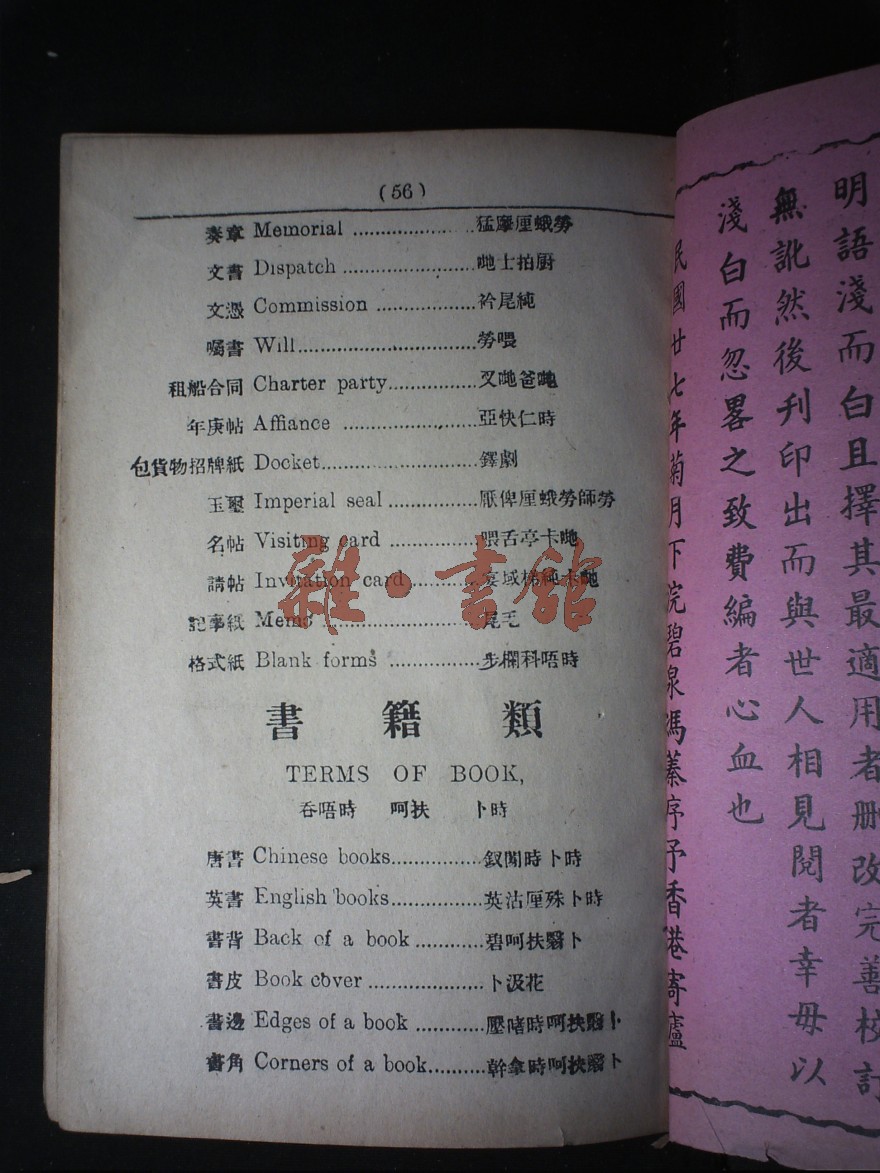 (56)
奏章 Memorial ......................猛孻厘蛾勞
文書 Dispatch ......................哋士拍厨
文憑 Commission ................衿尾純
囑書 Will...............................勞喂
租船合同 Charter party...............叉哋爸哋
年庚帖 Affiance ....................亞快仁時
包貨物招牌紙 Docket........................鐸劇
玉璽 Imperial seal ...............厭俾厘蛾勞師勞
名帖 Visiting card ...............喂舌亭卡哋
請帖 Invitation card ............域梯純卡哋
記事紙 Memo .......................尾毛
格式紙 Blank forms ...............步欄科唔時
書籍類
TERMS OF BOOK,
吞唔時 呵扶 卜時
唐書 Chinese books...............釵閪時卜時
英書 English books...............英沽厘殊卜時
書背 Back of a book ............碧呵扶翳卜
書皮 Book cover ....................卜汲花
書邊 Edges of a book ............壓啫時呵扶翳卜
書角 Corners of a book..........幹拿時呵扶翳卜
明語淺而白且擇其最適用者刪改完善校訂
無訛然後刊印出而與世人相見閱者幸毋以
淺白而忽畧之致費編者心血也
民國廿七年菊月下浣碧泉馮蓁序于香港寄廬
雜·書館